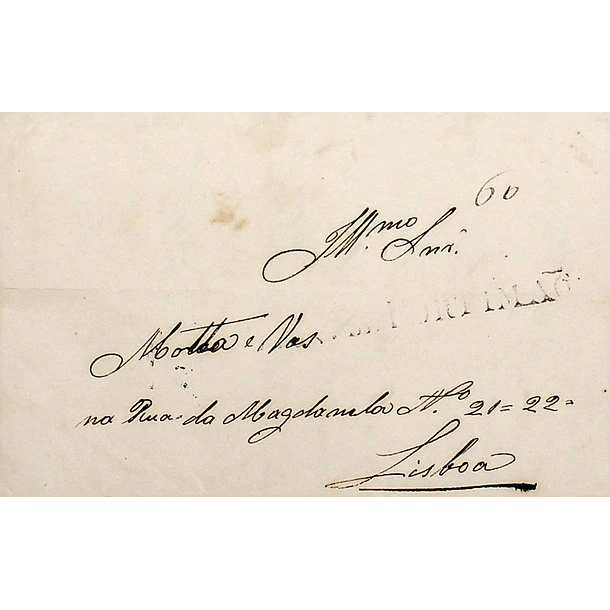 60
Ill.mo Snr.
Motta e Vas
na Rua da Magdanela N.o 21=22=
Lisboa